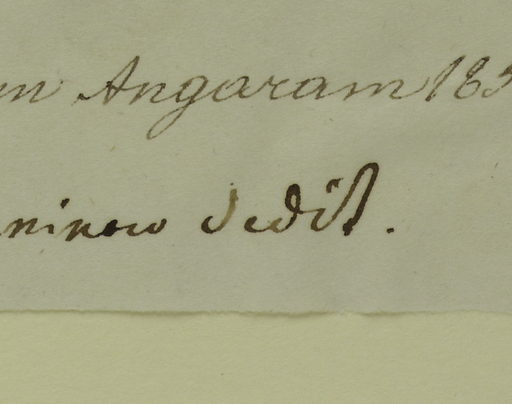 m Angaram 183
nineo dedit.